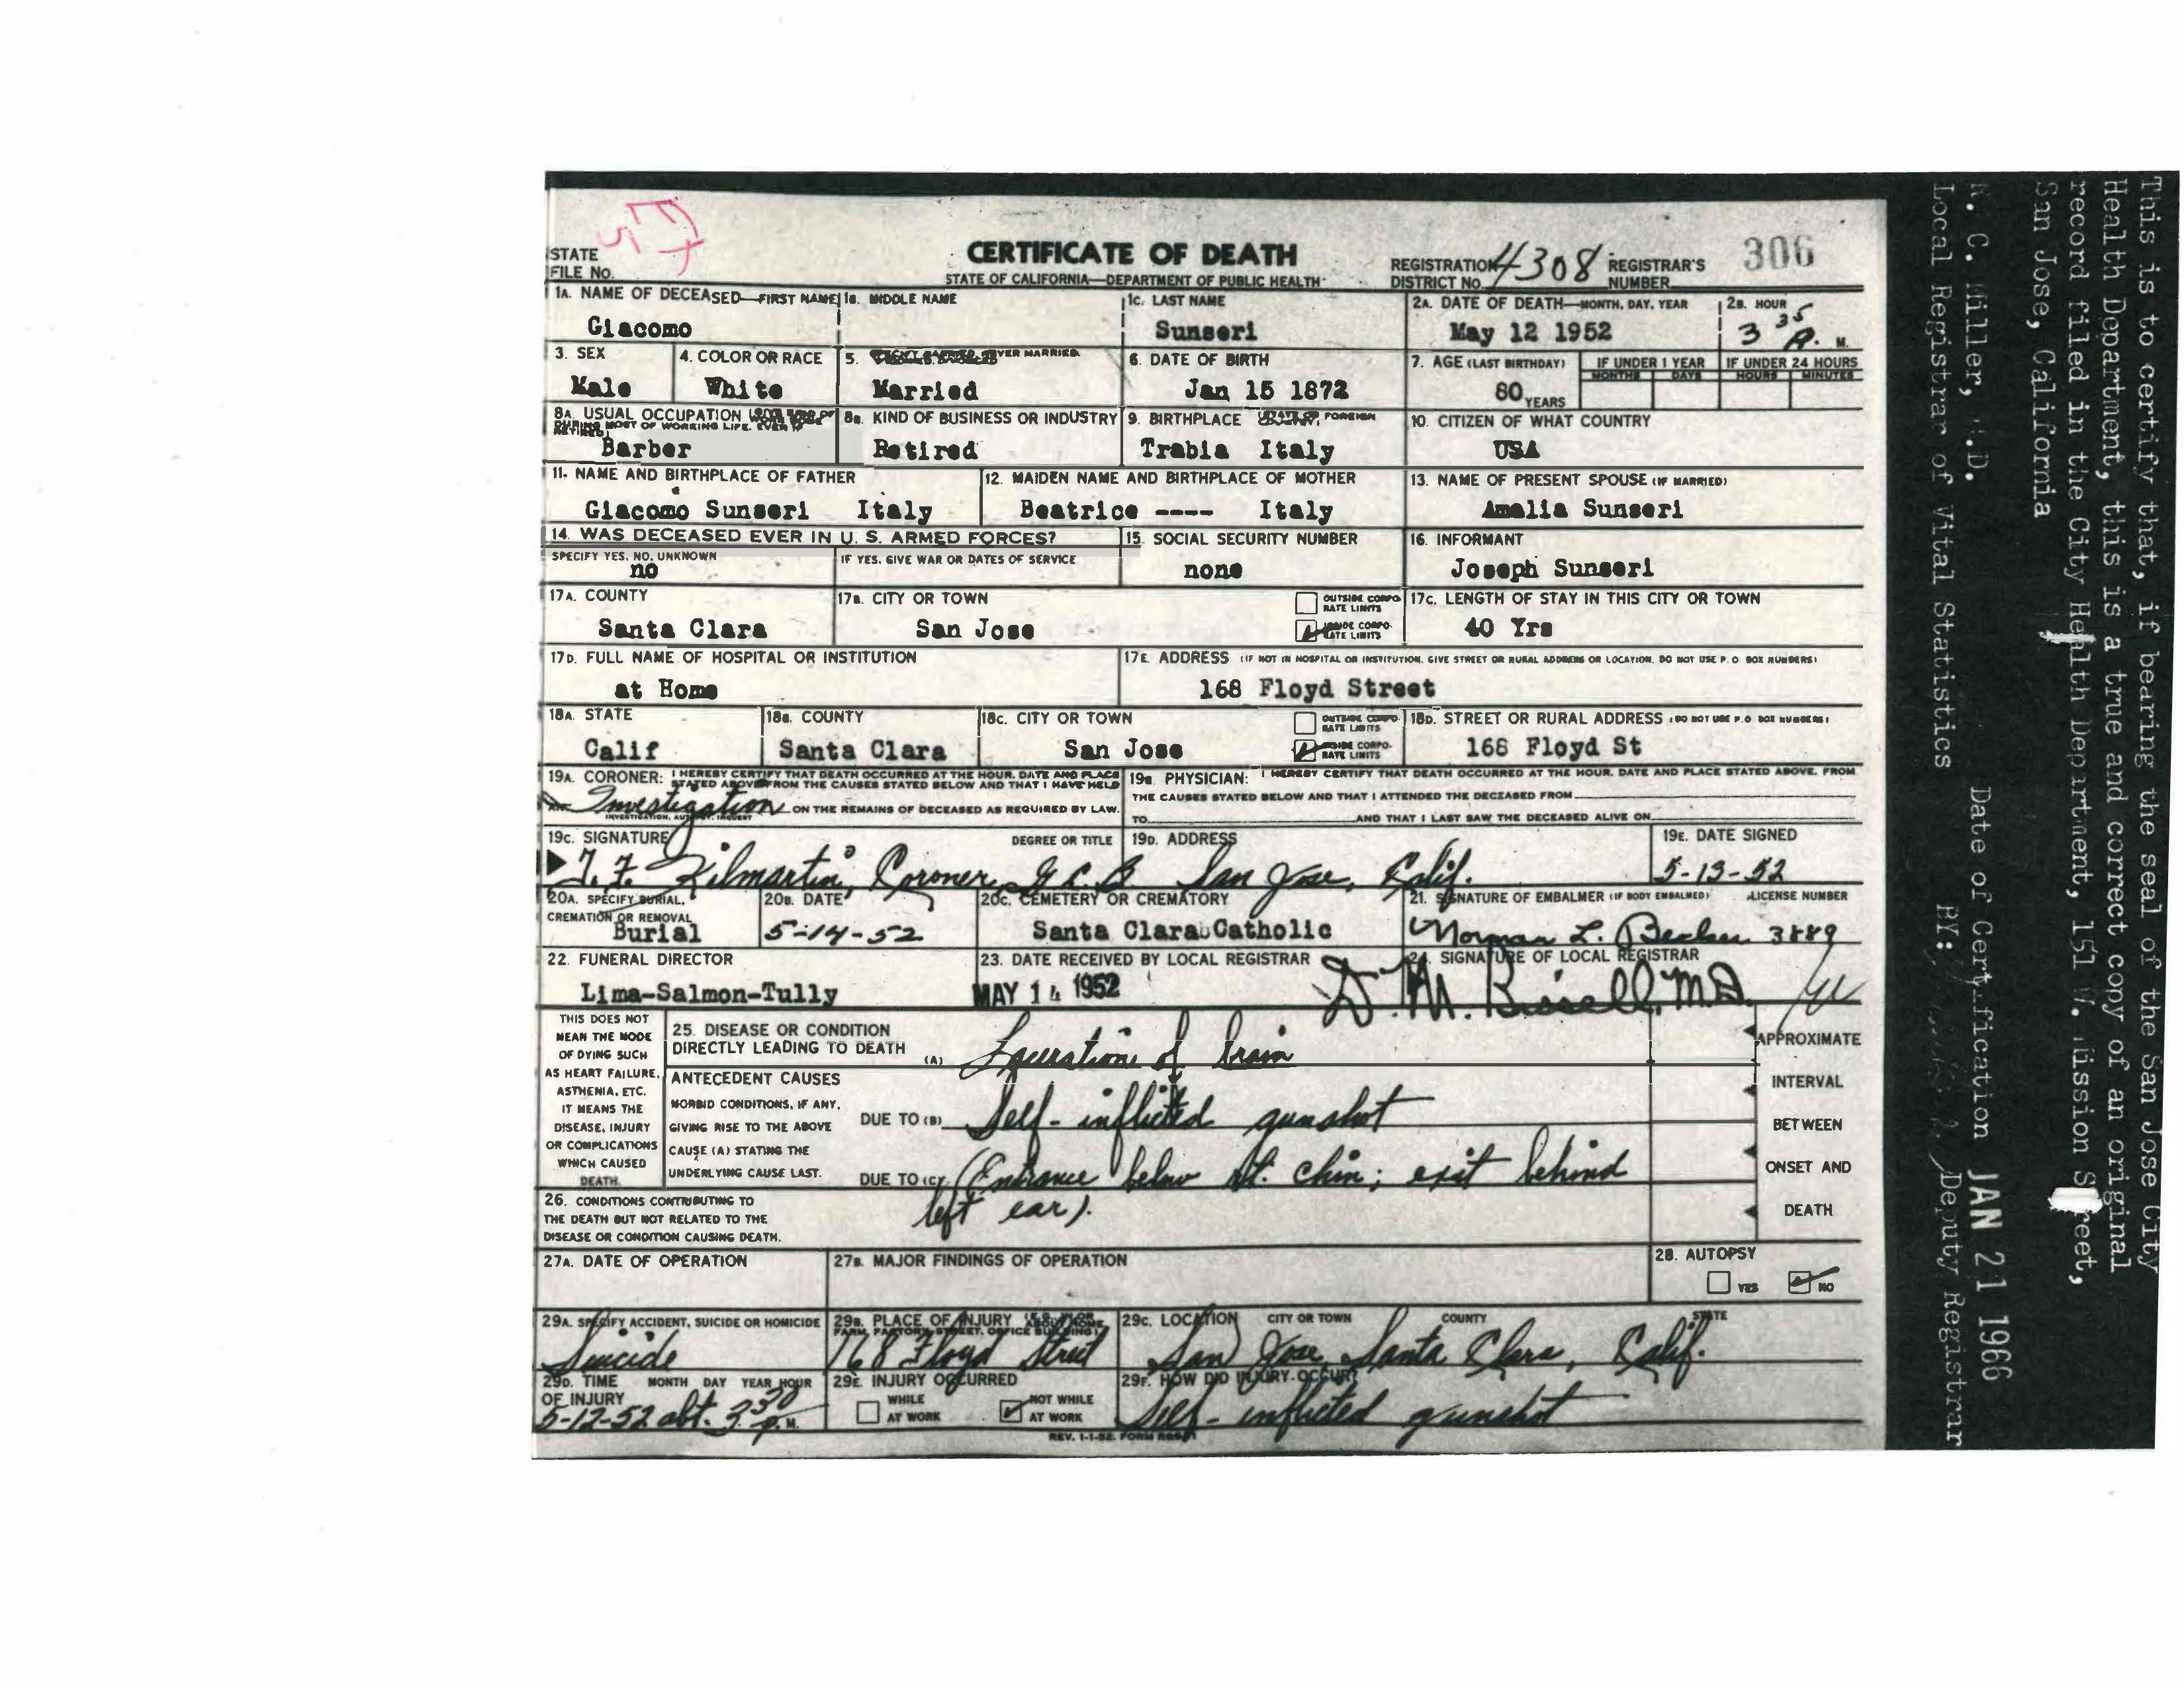 CERTIFICATE OF DEATH
STATE OF CALIFORNIA—DEPARTMENT OF PUBLIC HEALTH
STATE
FILE No.
REGISTRATION DISTRICT No. 4308
REGISTRAR'S NUMBER 306
1A. NAME OF DECEASED—FIRST NAME
Giacomo
1B. MIDDLE NAME
1C. LAST NAME
Sunseri
2A. DATE OF DEATH—MONTH, DAY, YEAR
May 12 1952
2B. HOUR
3 35 M.
3. SEX
Male
4. COLOR OR RACE
White
5. EVER MARRIED
Married
6. DATE OF BIRTH
Jan 15 1872
7. AGE (LAST BIRTHDAY)
80 YEARS
IF UNDER 1 YEAR
MONTHS DAYS
IF UNDER 24 HOURS
HOURS MINUTES
8A. USUAL OCCUPATION
DURING MOST OF WORKING LIFE, EVEN IF RETIRED)
Barber
8B. KIND OF BUSINESS OR INDUSTRY
Retired
9. BIRTHPLACE FOREIGN
Trabia Italy
10. CITIZEN OF WHAT COUNTRY
USA
11. NAME AND BIRTHPLACE OF FATHER
Giacomo Sunseri Italy
12. MAIDEN NAME AND BIRTHPLACE OF MOTHER
Beatrice ---- Italy
13. NAME OF PRESENT SPOUSE (IF MARRIED)
Amalia Sunseri
14. WAS DECEASED EVER IN U. S. ARMED FORCES?
SPECIFY YES, NO, UNKNOWN
no
IF YES, GIVE WAR OR DATES OF SERVICE
15. SOCIAL SECURITY NUMBER
none
16. INFORMANT
Joseph Sunseri
17A. COUNTY
Santa Clara
17B. CITY OR TOWN
San Jose
OUTSIDE CORPORATE LIMITS
INSIDE CORPORATE LIMITS
17C. LENGTH OF STAY IN THIS CITY OR TOWN
40 Yrs
17D. FULL NAME OF HOSPITAL OR INSTITUTION
at Home
17E. ADDRESS (IF NOT IN HOSPITAL OR INSTITUTION, GIVE STREET OR RURAL ADDRESS OR LOCATION. DO NOT USE P. O. BOX NUMBERS)
168 Floyd Street
18A. STATE
Calif
18B. COUNTY
Santa Clara
18C. CITY OR TOWN
San Jose
OUTSIDE CORPORATE LIMITS
INSIDE CORPORATE LIMITS
18D. STREET OR RURAL ADDRESS (DO NOT USE P.O. BOX NUMBERS)
168 Floyd St
19A. CORONER: I HEREBY CERTIFY THAT DEATH OCCURRED AT THE HOUR, DATE AND PLACE
STATED ABOVE FROM THE CAUSES STATED BELOW AND THAT I HAVE HELD
Investigation ON THE REMAINS OF DECEASED AS REQUIRED BY LAW.
INVESTIGATION, AUTOPSY, INQUEST
19B. PHYSICIAN: I HEREBY CERTIFY THAT DEATH OCCURRED AT THE HOUR, DATE AND PLACE STATED ABOVE, FROM
THE CAUSES STATED BELOW AND THAT I ATTENDED THE DECEASED FROM
TO AND THAT I LAST SAW THE DECEASED ALIVE ON
19C. SIGNATURE DEGREE OR TITLE
Kilmartin, Coroner
19D. ADDRESS
San Jose, Calif.
19E. DATE SIGNED
5-13-52
20A. SPECIFY BURIAL,
CREMATION OR REMOVAL
Burial
20B. DATE
5-14-52
20C. CEMETERY OR CREMATORY
Santa Clara Catholic
21. SIGNATURE OF EMBALMER (IF BODY EMBALMED) LICENSE NUMBER
Norman L. 3889
22. FUNERAL DIRECTOR
Lima-Salmon-Tully
23. DATE RECEIVED BY LOCAL REGISTRAR
MAY 14 1952
24. SIGNATURE OF LOCAL REGISTRAR
D. M. Bissell, M.D.
THIS DOES NOT
MEAN THE MODE
OF DYING SUCH
AS HEART FAILURE,
ASTHENIA, ETC.
IT MEANS THE
DISEASE, INJURY
OR COMPLICATIONS
WHICH CAUSED
DEATH.
25. DISEASE OR CONDITION
DIRECTLY LEADING TO DEATH (A) Laceration of brain
ANTECEDENT CAUSES
MORBID CONDITIONS, IF ANY,
GIVING RISE TO THE ABOVE
CAUSE (A) STATING THE
UNDERLYING CAUSE LAST.
DUE TO (B) Self-inflicted gunshot
DUE TO (C) (Entrance below rt. chin; exit behind
left ear).
APPROXIMATE
INTERVAL
BETWEEN
ONSET AND
DEATH
26. CONDITIONS CONTRIBUTING TO
THE DEATH BUT NOT RELATED TO THE
DISEASE OR CONDITION CAUSING DEATH.
27A. DATE OF OPERATION
27B. MAJOR FINDINGS OF OPERATION
28. AUTOPSY
YES NO
29A. SPECIFY ACCIDENT, SUICIDE OR HOMICIDE
Suicide
29B. PLACE OF INJURY
FARM, FACTORY, STREET, OFFICE BUILDING)
168 Floyd Street
29C. LOCATION CITY OR TOWN COUNTY STATE
San Jose, Santa Clara, Calif.
29D. TIME MONTH DAY YEAR HOUR
OF INJURY
5-12-52 abt. 3 30 P.M.
29E. INJURY OCCURRED
WHILE AT WORK
NOT WHILE AT WORK
29F. HOW DID INJURY OCCUR?
Self-inflicted gunshot
REV. 1-1-52 FORM
This is to certify that, if bearing the seal of the San Jose City
Health Department, this is a true and correct copy of an original
record filed in the City Health Department, 151 W. Mission Street,
San Jose, California
C. Miller, M.D. Date of Certification JAN 21 1966
Local Registrar of Vital Statistics BY: Deputy Registrar